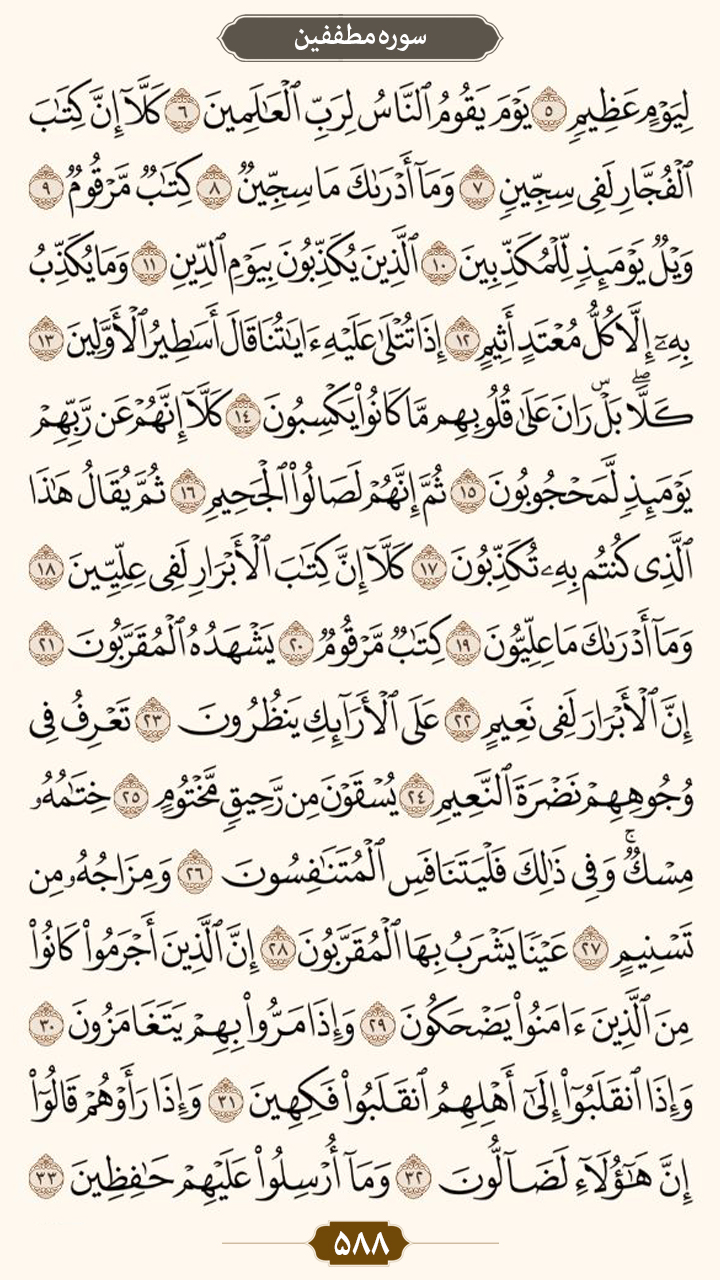 سوره مطففین
لِيَوْمٍ عَظِيمٍ ٥ يَوْمَ يَقُومُ ٱلنَّاسُ لِرَبِّ ٱلْعَـٰلَمِينَ ٦ كَلَّآ إِنَّ كِتَـٰبَ
ٱلْفُجَّارِ لَفِى سِجِّينٍ ٧ وَمَآ أَدْرَىٰكَ مَا سِجِّينٌ ٨ كِتَـٰبٌ مَّرْقُومٌ ٩
وَيْلٌ يَوْمَئِذٍ لِّلْمُكَذِّبِينَ ١٠ ٱلَّذِينَ يُكَذِّبُونَ بِيَوْمِ ٱلدِّينِ ١١ وَمَا يُكَذِّبُ
بِهِۦٓ إِلَّا كُلُّ مُعْتَدٍ أَثِيمٍ ١٢ إِذَا تُتْلَىٰ عَلَيْهِ ءَايَـٰتُنَا قَالَ أَسَـٰطِيرُ ٱلْأَوَّلِينَ ١٣
كَلَّا ۖ بَلْ ۜ رَانَ عَلَىٰ قُلُوبِهِم مَّا كَانُوا۟ يَكْسِبُونَ ١٤ كَلَّآ إِنَّهُمْ عَن رَّبِّهِمْ
يَوْمَئِذٍ لَّمَحْجُوبُونَ ١٥ ثُمَّ إِنَّهُمْ لَصَالُوا۟ ٱلْجَحِيمِ ١٦ ثُمَّ يُقَالُ هَـٰذَا
ٱلَّذِى كُنتُم بِهِۦ تُكَذِّبُونَ ١٧ كَلَّآ إِنَّ كِتَـٰبَ ٱلْأَبْرَارِ لَفِى عِلِّيِّينَ ١٨
وَمَآ أَدْرَىٰكَ مَا عِلِّيُّونَ ١٩ كِتَـٰبٌ مَّرْقُومٌ ٢٠ يَشْهَدُهُ ٱلْمُقَرَّبُونَ ٢١
إِنَّ ٱلْأَبْرَارَ لَفِى نَعِيمٍ ٢٢ عَلَى ٱلْأَرَآئِكِ يَنظُرُونَ ٢٣ تَعْرِفُ فِى
وُجُوهِهِمْ نَضْرَةَ ٱلنَّعِيمِ ٢٤ يُسْقَوْنَ مِن رَّحِيقٍ مَّخْتُومٍ ٢٥ خِتَـٰمُهُۥ
مِسْكٌ ۚ وَفِى ذَٰلِكَ فَلْيَتَنَافَسِ ٱلْمُتَنَـٰفِسُونَ ٢٦ وَمِزَاجُهُۥ مِن
تَسْنِيمٍ ٢٧ عَيْنًا يَشْرَبُ بِهَا ٱلْمُقَرَّبُونَ ٢٨ إِنَّ ٱلَّذِينَ أَجْرَمُوا۟ كَانُوا۟
مِنَ ٱلَّذِينَ ءَامَنُوا۟ يَضْحَكُونَ ٢٩ وَإِذَا مَرُّوا۟ بِهِمْ يَتَغَامَزُونَ ٣٠
وَإِذَا ٱنقَلَبُوٓا۟ إِلَىٰٓ أَهْلِهِمُ ٱنقَلَبُوا۟ فَكِهِينَ ٣١ وَإِذَا رَأَوْهُمْ قَالُوٓا۟
إِنَّ هَـٰٓؤُلَآءِ لَضَآلُّونَ ٣٢ وَمَآ أُرْسِلُوا۟ عَلَيْهِمْ حَـٰفِظِينَ ٣٣
۵۸۸